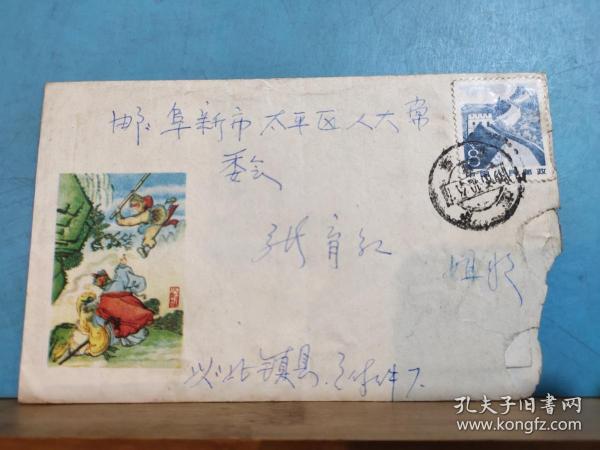 邮：阜新市太平区人大常
委会
张育红 姐收
北镇县
8
孔夫子旧书网
www.kongfz.com